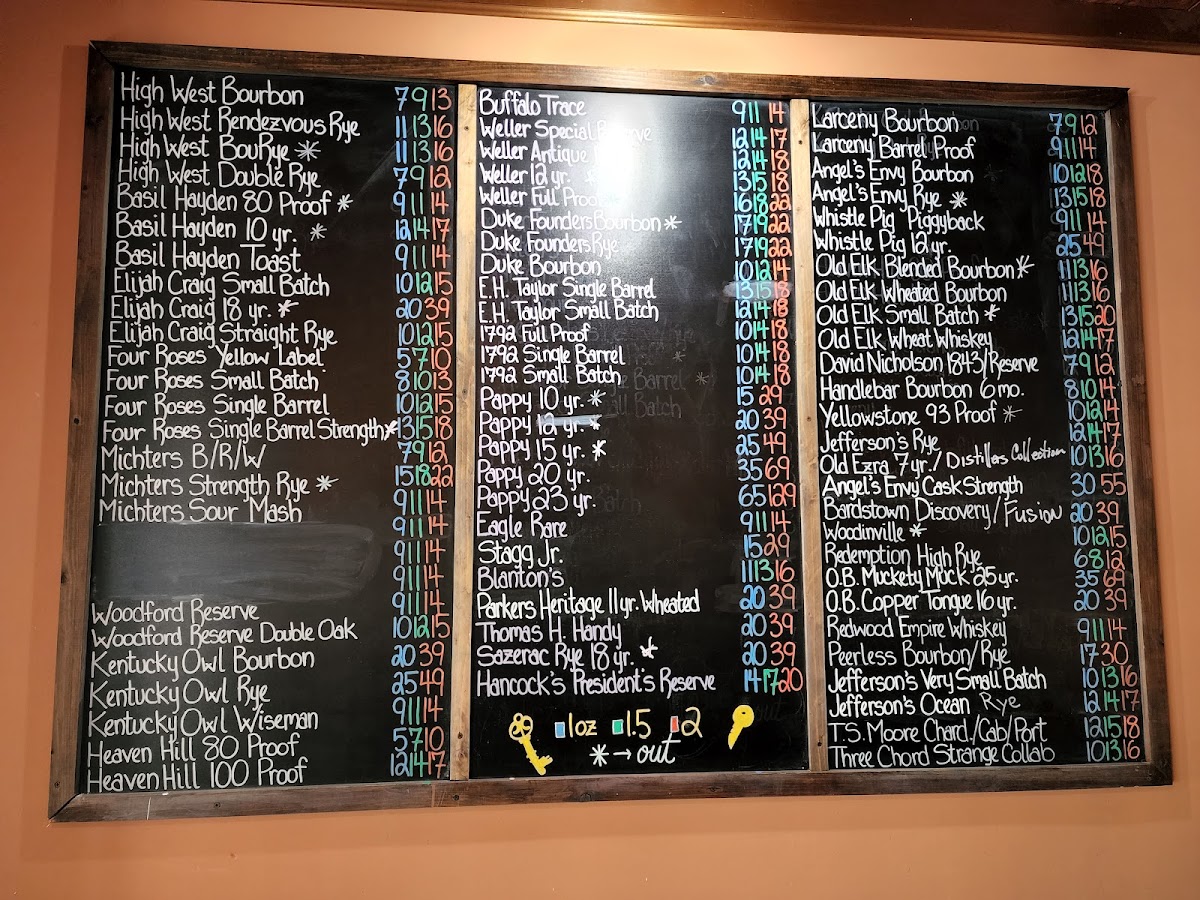 High West Bourbon 7 9 13
High West Rendezvous Rye 11 13 16
High West BouRye * 11 13 16
High West Double Rye 7 9 12
Basil Hayden 80 Proof * 9 11 14
Basil Hayden 10 yr. * 12 14 17
Basil Hayden Toast 9 11 14
Elijah Craig Small Batch 10 12 15
Elijah Craig 18 yr. * 20 39
Elijah Craig Straight Rye 10 12 15
Four Roses Yellow Label 5 7 10
Four Roses Small Batch 8 10 13
Four Roses Single Barrel 10 12 15
Four Roses Single Barrel Strength * 13 15 18
Michters B/R/W 7 9 12
Michters Strength Rye * 15 18 22
Michters Sour Mash 9 11 14
9 11 14
9 11 14
9 11 14
Woodford Reserve 9 11 14
Woodford Reserve Double Oak 10 12 15
Kentucky Owl Bourbon 20 39
Kentucky Owl Rye 25 49
Kentucky Owl Wiseman 9 11 14
Heaven Hill 80 Proof 5 7 10
Heaven Hill 100 Proof 12 14 17
Buffalo Trace 9 11 14
Weller Special Reserve 12 14 17
Weller Antique 12 14 18
Weller 12 yr. 13 15 18
Weller Full Proof 16 18 22
Duke Founders Bourbon * 17 19 22
Duke Founders Rye 17 19 22
Duke Bourbon 10 12 14
E.H. Taylor Single Barrel 13 15 18
E.H. Taylor Small Batch 12 14 18
1792 Full Proof 10 14 18
1792 Single Barrel 10 14 18
1792 Small Batch 10 14 18
Pappy 10 yr. * 15 29
Pappy 12 yr. * 20 39
Pappy 15 yr. * 25 49
Pappy 20 yr. 35 69
Pappy 23 yr. 65 129
Eagle Rare 9 11 14
Stagg Jr. 15 29
Blanton's 11 13 16
Parkers Heritage 11 yr. Wheated 20 39
Thomas H. Handy 20 39
Sazerac Rye 18 yr. * 20 39
Hancock's President's Reserve 14 17 20
1oz 1.5 2
* → out
Larceny Bourbon 7 9 12
Larceny Barrel Proof 9 11 14
Angel's Envy Bourbon 10 12 18
Angel's Envy Rye * 13 15 18
Whistle Pig Piggyback 9 11 14
Whistle Pig 12 yr. 25 49
Old Elk Blended Bourbon * 11 13 16
Old Elk Wheated Bourbon 11 13 16
Old Elk Small Batch * 13 15 20
Old Elk Wheat Whiskey 12 14 17
David Nicholson 1843/Reserve 7 9 12
Handlebar Bourbon 6 mo. 8 10 14
Yellowstone 93 Proof * 10 12 14
Jefferson's Rye 12 14 17
Old Ezra 7 yr. / Distillers Collection 10 13 16
Angel's Envy Cask Strength 30 55
Bardstown Discovery / Fusion 20 39
Woodinville * 10 12 15
Redemption High Rye 6 8 12
O.B. Muckety Muck 25 yr. 35 69
O.B. Copper Tongue 16 yr. 20 39
Redwood Empire Whiskey 9 11 14
Peerless Bourbon/Rye 17 30
Jefferson's Very Small Batch 10 13 16
Jefferson's Ocean Rye 12 14 17
T.S. Moore Chard./Cab/Port 12 15 18
Three Chord Strange Collab 10 13 16